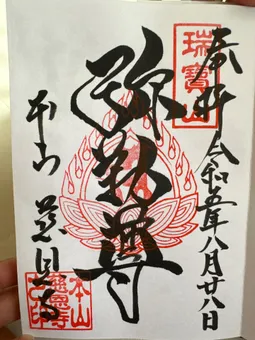 奉拝 令和五年八月廿八日
瑞寶山
弥勒尊
本山 慈恩寺
本山慈恩寺之印